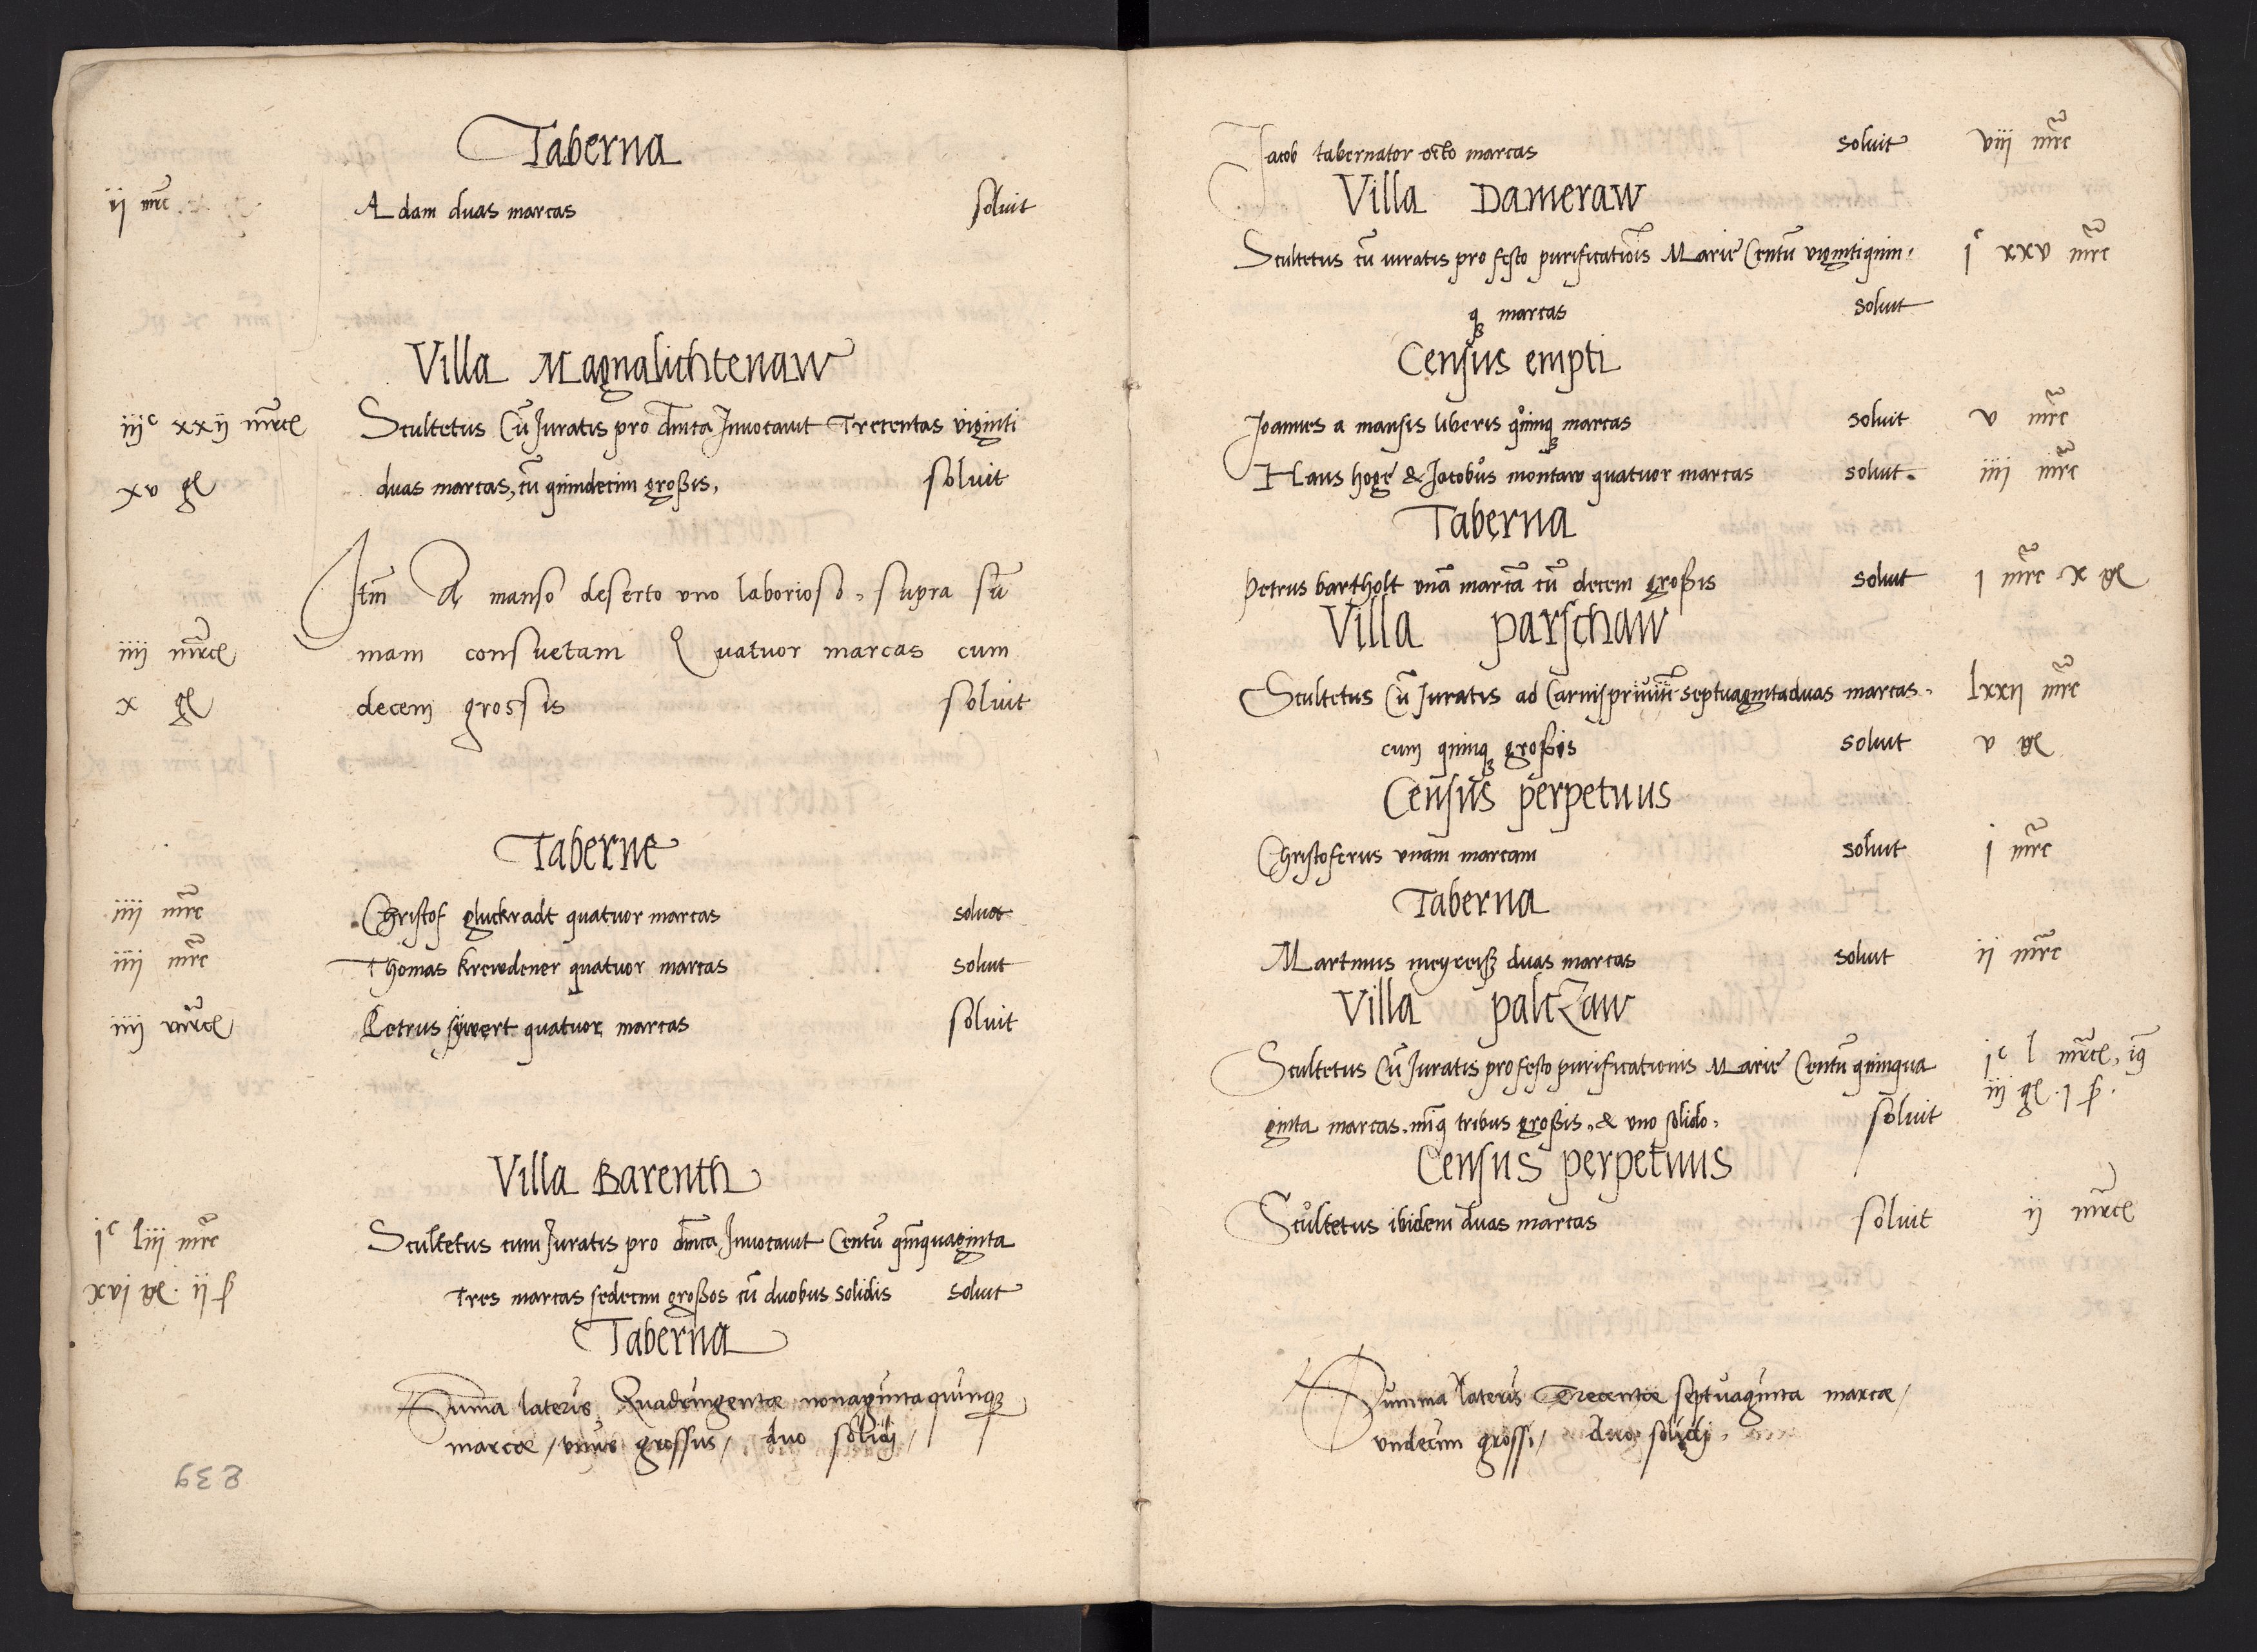 Taberna
ii mrc Adam duas marcas soluit
Villa Magnalichtenaw
iijc xxij mrc Scultetus Cū Juratis pro dnica Jnuocauit Trecentas viginti
xv gl duas marcas, cū quindecim großis, soluit
Itm A manso deserto vno laborioso, supra sū
iiij mrc mam consuetam Quatuor marcas cum
x gl decem grossis soluit
Taberne
iiij mrc Christof gluckradt quatuor marcas soluit
iiij mrc Thomas krewdener quatuor marcas soluit
iiij mrc Petrus sywert quatuor marcas soluit
Villa Barenth
jc liij mrc Scultetus cum Juratis pro dnica Jnuocauit Centū quinquaginta
xvj gl. ij ß Tres marcas sedecim großos cū duobus solidis soluit
Taberna
Suma lateris Quadringentae nonaginta quinq
marcae / vnus grossus / duo solidi /
239
Jacob tabernator octo marcas soluit viij mrc
Villa Dameraw
Scultetus cū iuratis pro festo purificatiois Marie Centū vigintiquin, jc xxv mrc
q marcas soluit
Census empti
Joannes a mansis liberis quinq marcas soluit v mrc
Hans hoge & Jacobus montaw quatuor marcas soluit. iiij mrc
Taberna
Petrus bartholt vnā marcā cū decem großis soluit j mrc x gl
Villa parschaw
Scultetus Cū Juratis ad Carnispriuiū septuagintaduas marcas. lxxij mrc
cum quinq großis soluit v gl
Census perpetuus
Christoferus vnam marcam soluit j mrc
Taberna
Martinus meyreiß duas marcas soluit ij mrc
Villa palczaw
Scultetus Cū Juratis pro festo purificationis Marie Centū quinqua jc l mrc,
ginta marcas, min9 tribus großis, & vno solido, soluit iij gl. j ß.
Census perpetuus
Scultetus ibidem duas marcas soluit ij mrc
Summa lateris Trecentae septuaginta marcae /
vndecim grossi / duo solidi.